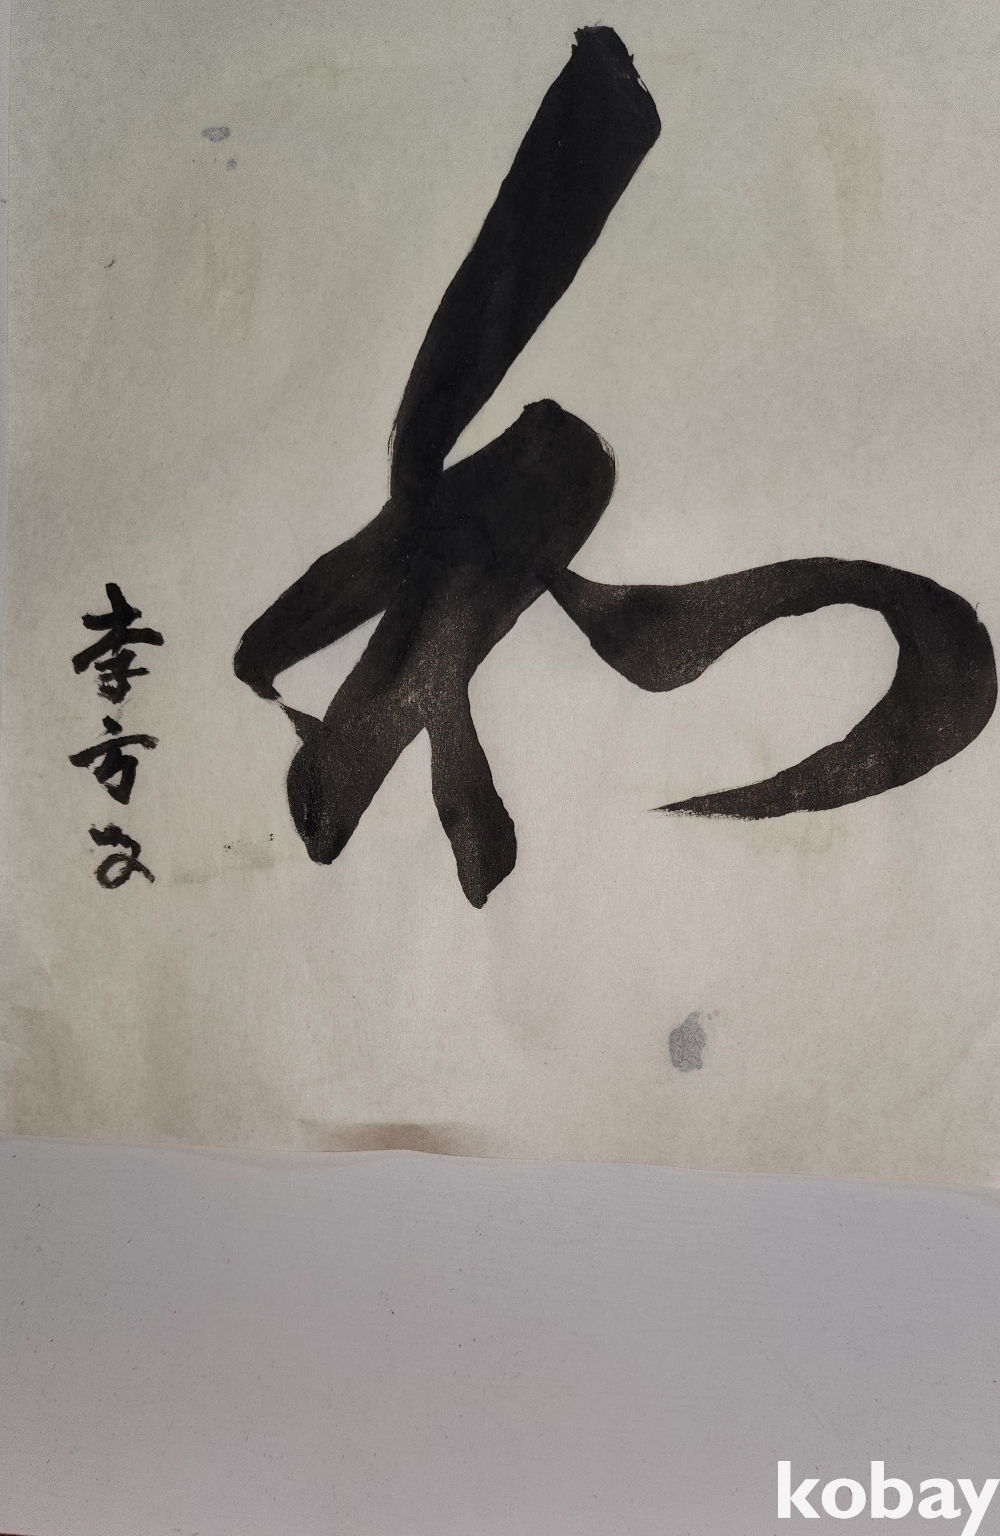 和
李方
kobay